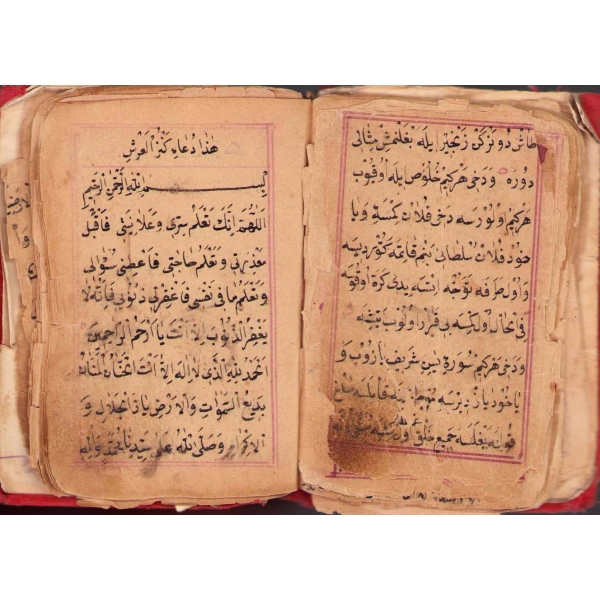 طاش دونر كن زنجير ايله بغلنمش مثالى
دوره و دخى هركيم خلوص ايله اوقيوب
هركيم اولورسه دخى فلان كمسه ويا
خود فلان سلطانى بنم قاتمه كتور ديسه
واول طرفه توجه ايتسه يدى كره اوقوسه
فى الحال اول كسه بى قرار اولوب
و دخى هركيم سورة يس شريف يازوب و
ياخود يازديرسه
قولنه بغلسه جميع خلق
هذا دعاء كنز العرش
بسم الله الرحمن الرحيم
اللهم انك تعلم سرى وعلانيتى فاقبل
معذرتى وتعلم حاجتى فاعطنى سؤالى
وتعلم ما فى نفسى فاغفرلى ذنوبى فانه لا
يغفر الذنوب الا انت يا ارحم الراحمين
الحمد لله الذى لا اله الا انت الحنان المنان
بديع السموات والارض يا ذا الجلال و
الاكرام وصلى الله على سيدنا محمد وآله